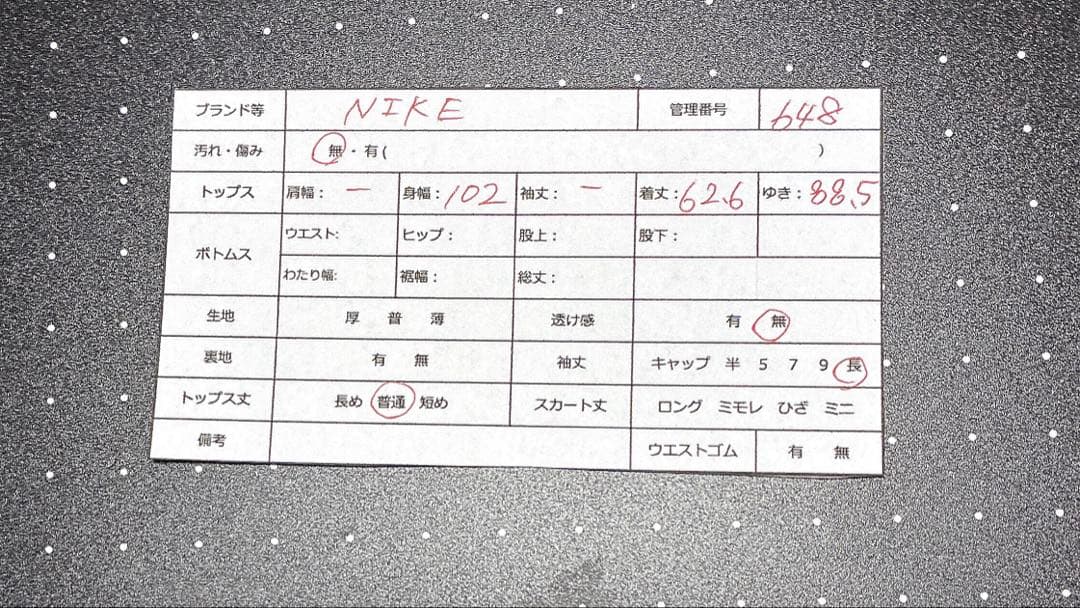 ブランド等 NIKE 管理番号 648
汚れ・傷み 無・有( )
トップス 肩幅: ー 身幅:102 袖丈: ー 着丈:62.6 ゆき:88.5
ボトムス ウエスト: ヒップ: 股上: 股下:
わたり幅: 裾幅: 総丈:
生地 厚 普 薄 透け感 有 無
裏地 有 無 袖丈 キャップ 半 5 7 9 長
トップス丈 長め 普通 短め スカート丈 ロング ミモレ ひざ ミニ
備考 ウエストゴム 有 無